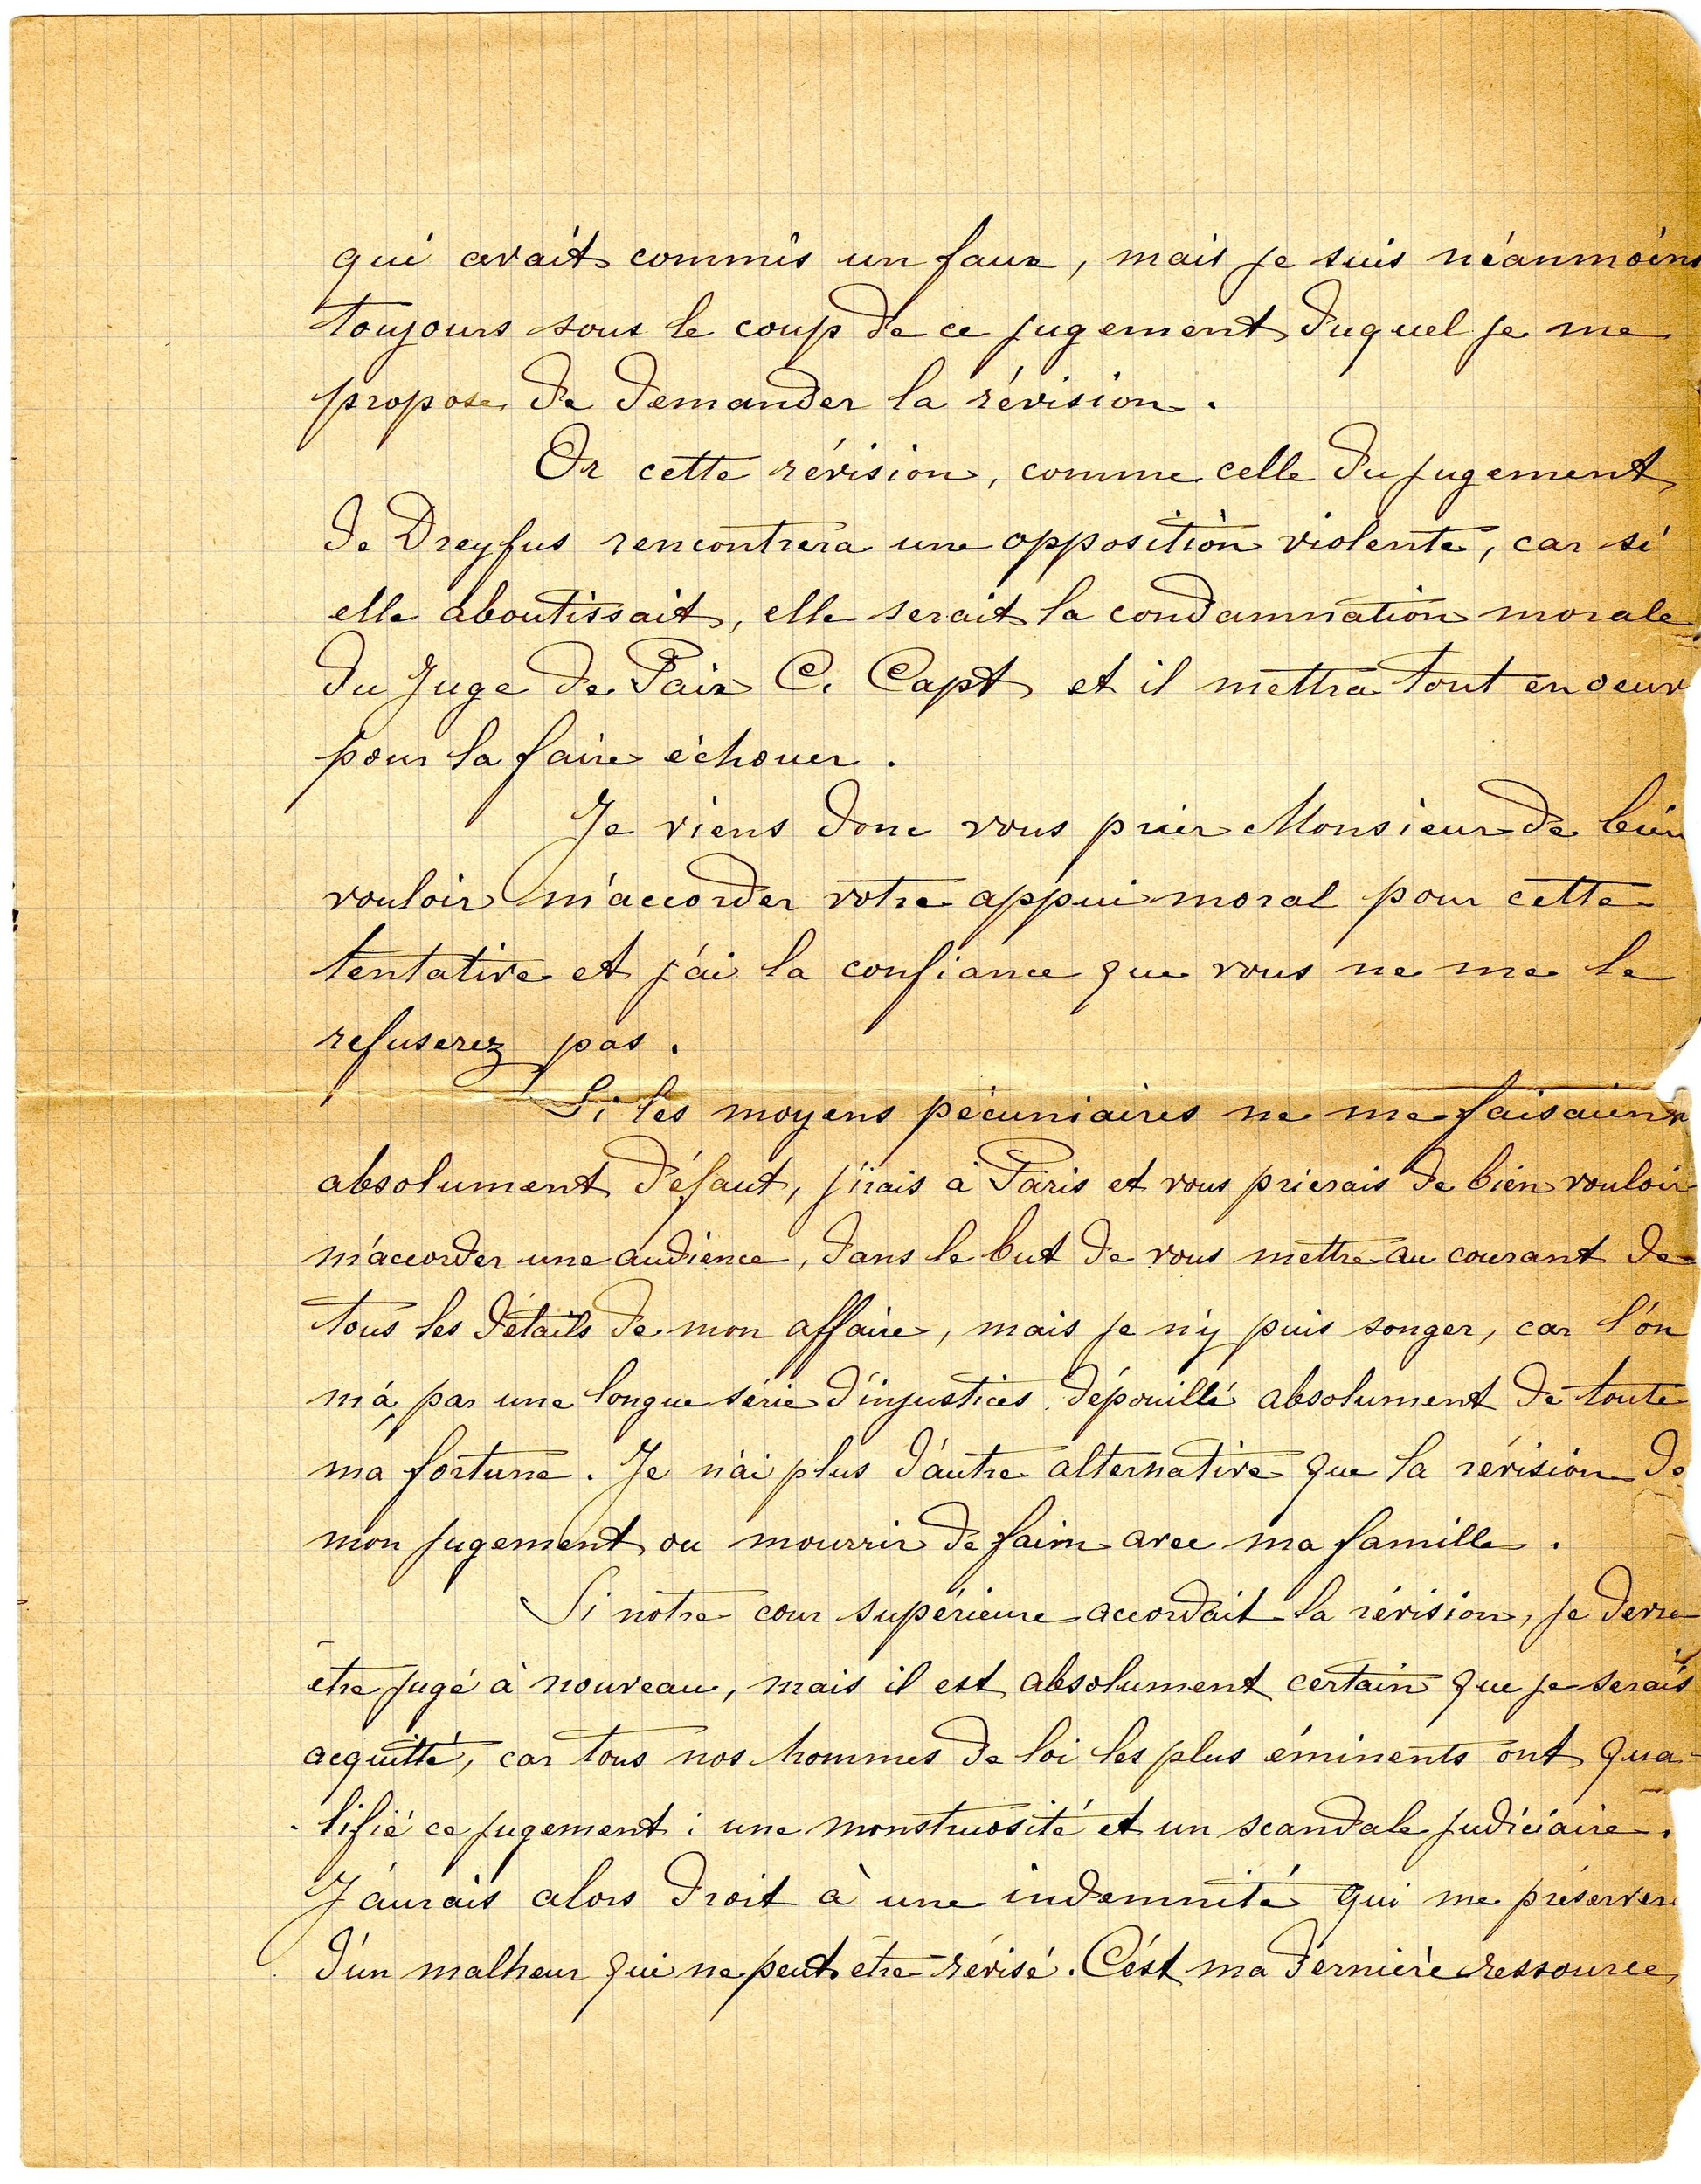 qui avait commis un faux, mais je suis néanmoins
toujours sous le coup de ce jugement duquel je me
propose de demander la révision.
Or cette révision, comme celle du jugement
de Dreyfus rencontrera une opposition violente, car si
elle aboutissait, elle serait la condamnation morale
du Juge de Paix C. Capt et il mettra tout en oeuv
pour la faire échouer.
Je viens donc vous prier Monsieur de bien
vouloir m'accorder votre appui moral pour cette
tentative et j'ai la confiance que vous ne me le
refuserez pas.
Si les moyens pécuniaires ne me faisaient
absolument défaut, j'irais à Paris et vous prierais de bien vouloir
m'accorder une audience, dans le but de vous mettre au courant de
tous les détails de mon affaire, mais je n'y puis songer, car l'on
m'a, par une longue série d'injustices dépouillé absolument de toute
ma fortune. Je n'ai plus d'autre alternative que la révision de
mon jugement ou mourrir de faim avec ma famille.
Si notre cour supérieure accordait la révision, je devrais
être jugé à nouveau, mais il est absolument certain que je serais
acquitté, car tous nos hommes de loi les plus éminents ont qua-
lifié ce jugement : une monstruosité et un scandale judiciaire.
J'aurais alors droit à une indemnité qui me préserver
d'un malheur qui ne peut être révisé. C'est ma dernière ressource,